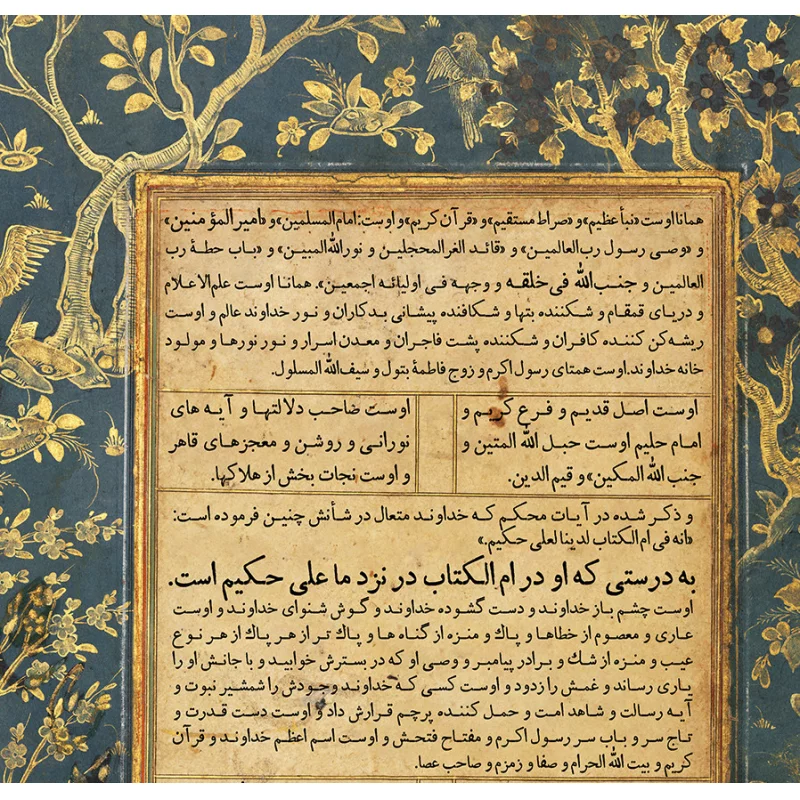 همانا اوست «نبأ عظیم» و «صراط مستقیم» و «قرآن کریم» و اوست: امام المسلمین» و «امیر المؤمنین»
و «وصی رسول رب العالمین» و «قائد الغر المحجلین و نورالله المبین» و «باب حطهٔ رب
العالمین و جنب‌الله فی خلقه و وجهه فی اولیائه اجمعین». همانا اوست علم‌الاعلام
و دریای قمقام و شکننده بتها و شکافنده پیشانی بدکاران و نور خداوند عالم و اوست
ریشه‌کن کننده کافران و شکننده پشت فاجران و معدن اسرار و نور نورها و مولود
خانه خداوند. اوست همتای رسول اکرم و زوج فاطمهٔ بتول و سیف‌الله المسلول.
اوست اصل قدیم و فرع کریم و
امام حلیم اوست حبل الله المتین و
جنب الله المکین» و قیم الدین.
اوست صاحب دلالتها و آیه های
نورانی و روشن و معجزهای قاهر
و اوست نجات بخش از هلاکها.
و ذکر شده در آیات محکم که خداوند متعال در شأنش چنین فرموده است:
«انه فی ام الکتاب لدینا لعلی حکیم.»
به درستی که او در ام الکتاب در نزد ما علی حکیم است.
اوست چشم باز خداوند و دست گشوده خداوند و گوش شنوای خداوند و اوست
عاری و معصوم از خطاها و پاك و منزه از گناه ها و پاك تر از هر پاك از هر نوع
عیب و منزه از شك و برادر پیامبر و وصی او که در بسترش خوابید و با جانش او را
یاری رساند و غمش را زدود و اوست کسی که خداوند وجودش را شمشیر نبوت و
آیه رسالت و شاهد امت و حمل کننده پرچم قرارش داد و اوست دست قدرت و
تاج سر و باب سر رسول اکرم و مفتاح فتحش و اوست اسم اعظم خداوند و قرآن
کریم و بیت الله الحرام و صفا و زمزم و صاحب عصا.